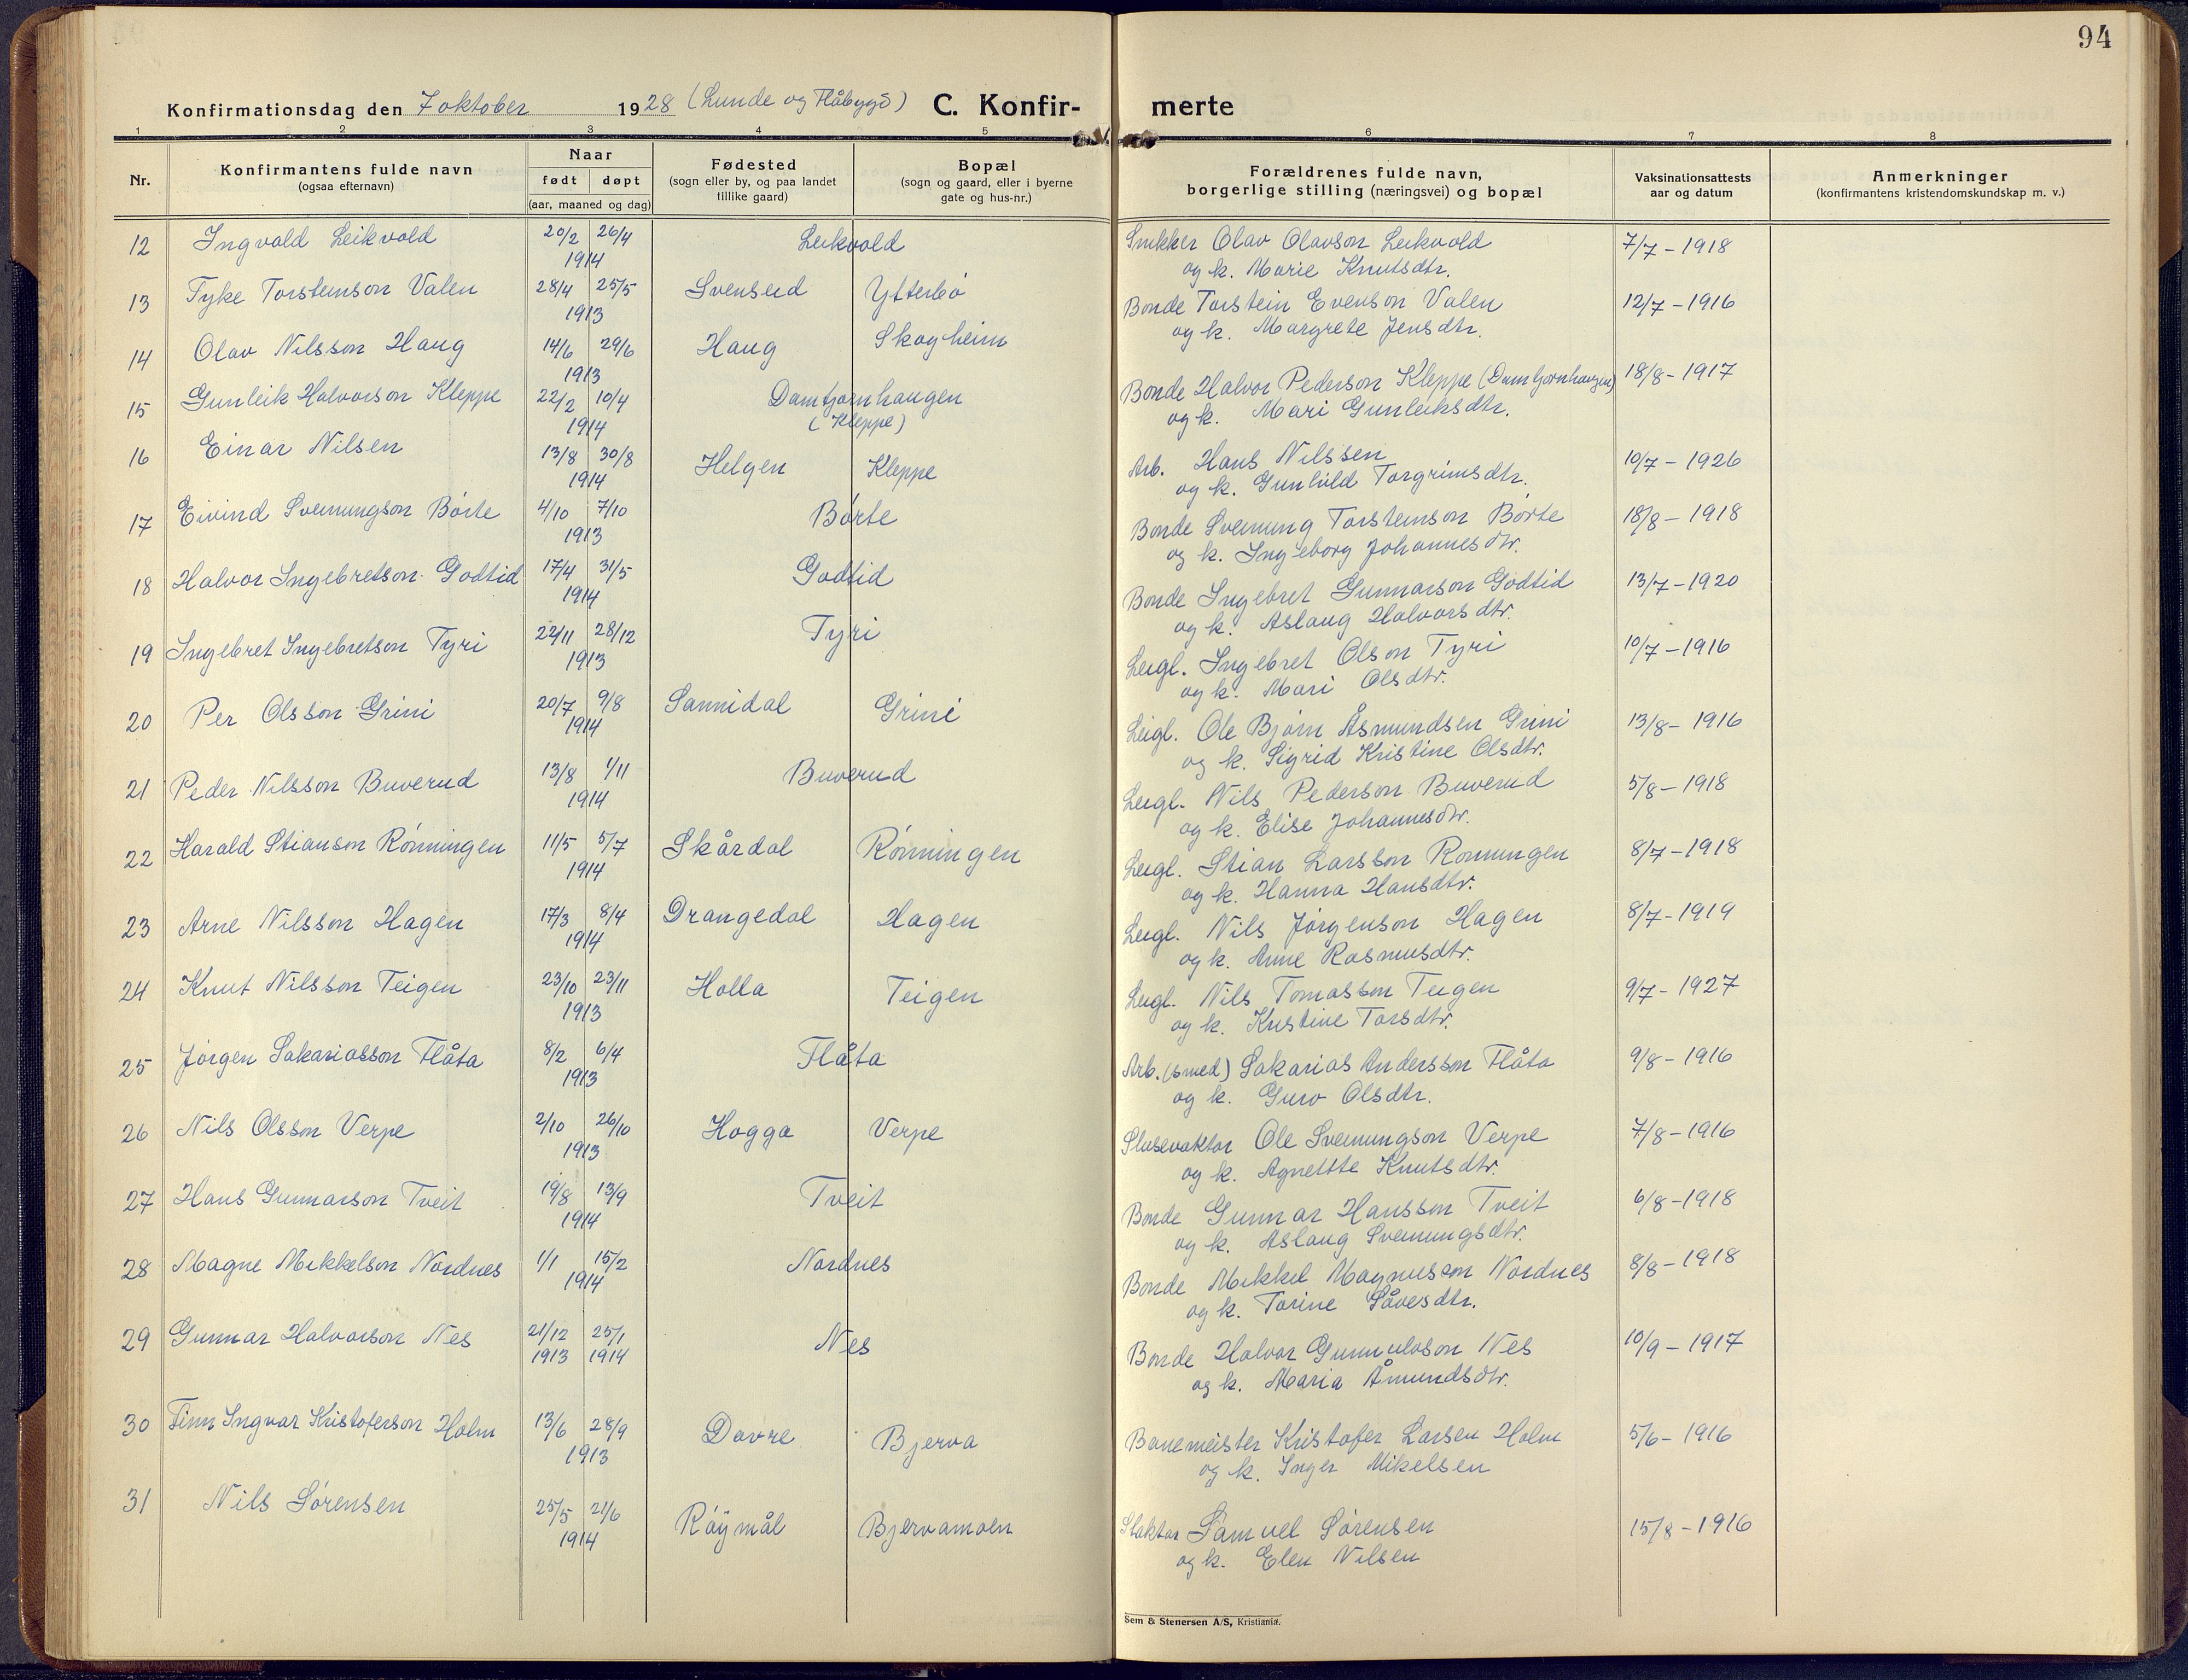 94
Konfirmationsdag den 7 oktober 1928 (Lunde og Flåbygd) C. Konfir- merte
1 2 3 4 5 6 7 8
Nr.
Konfirmantens fulde navn
(ogsaa efternavn)
Naar
født døpt
(aar, maaned og dag)
Fødested
(sogn eller by, og paa landet
tillike gaard)
Bopæl
(sogn og gaard, eller i byerne
gate og hus-nr.)
Forældrenes fulde navn,
borgerlige stilling (næringsvei) og bopæl
Vaksinationsattests
aar og datum
Anmerkninger
(konfirmantens kristendomskundskap m. v.)
12 Ingvald Leikvold 20/2 26/4 Leikvold Snikker Olav Olavson Leikvold 7/7 - 1918
1914 og k. Marie Knutsdtr.
13 Tyke Torsteinson Valen 28/4 25/5 Svenseid Ytterbø Bonde Torstein Evenson Valen 12/7 - 1916
1913 og k. Margrete Jensdtr.
14 Olav Nilsson Haug 14/6 29/6 Haug Skogheim
1913
15 Gunleik Halvorson Kleppe 22/2 10/4 Damtjørnhaugen Bonde Halvor Pederson Kleppe (Damtjørnhaugen) 18/8 - 1917
1914 (Kleppe) og k. Mari Gunleiksdtr.
16 Einar Nilsen 13/8 30/8 Helgen Kleppe Arb. Hans Nilssen 10/7 - 1926
1914 og k. Gunhild Torgrimsdtr.
17 Eivind Sveinungson Børte 4/10 7/10 Børte Bonde Sveinung Torsteinson Børte 18/8 - 1918
1913 og k. Ingeborg Johannesdtr.
18 Halvor Ingebretson Godtid 17/4 31/5 Godtid Bonde Ingebret Gunnarson Godtid 13/7 - 1920
1914 og k. Aslaug Halvorsdtr.
19 Ingebret Ingebretson Tyri 22/11 28/12 Tyri Leigl. Ingebret Olson Tyri 10/7 - 1916
1913 og k. Mari Olsdtr.
20 Per Olsson Grini 20/7 9/8 Sannidal Grini Leigl. Ole Bjørn Åsmundsen Grini 13/8 - 1916
1914 og k. Sigrid Kristine Olsdtr.
21 Peder Nilsson Buverud 13/8 1/11 Buverud Leigl. Nils Pederson Buverud 5/8 - 1918
1914 og k. Elise Johannesdtr.
22 Harald Stianson Rønningen 11/5 5/7 Skårdal Rønningen Leigl. Stian Larsson Rønningen 8/7 - 1918
1914 og k. Hanna Hansdtr.
23 Arne Nilsson Hagen 17/3 8/4 Drangedal Hagen Leigl. Nils Jørgenson Hagen 8/7 - 1919
1914 og k. Anne Rasmusdtr.
24 Knut Nilsson Teigen 23/10 23/11 Holla Teigen Leigl. Nils Tomasson Teigen 9/7 - 1927
1913 og k. Kristine Torsdtr.
25 Jørgen Sakariasson Flåta 8/2 6/4 Flåta Arb. (smed) Sakarias Andersson Flåta 9/8 - 1916
1913 og k. Guro Olsdtr.
26 Nils Olsson Verpe 2/10 26/10 Hogga Verpe Slusevaktar Ole Sveinungson Verpe 7/8 - 1916
1913 og k. Agnethe Knutsdtr.
27 Hans Gunnarson Tveit 19/8 13/9 Tveit Bonde Gunnar Hansson Tveit 6/8 - 1918
1914 og k. Aslaug Sveinungsdtr.
28 Magne Mikkelson Nordnes 1/1 15/2 Nordnes Bonde Mikkel Magnusson Nordnes 8/8 - 1918
1914 og k. Torine Såvesdtr.
29 Gunnar Halvorson Nes 21/12 25/1 Nes Bonde Halvor Gunnulvson Nes 10/9 - 1917
1913 1914 og k. Maria Åmundsdtr.
30 Finn Ingvar Kristoferson Holm 13/6 28/9 Dovre Bjerva Banemeister Kristofer Larsen Holm 5/6 - 1916
1913 og k. Inger Mikelsen
31 Nils Sørensen 25/5 21/6 Røymål Bjervamoen Slaktar Samuel Sørensen 15/8 - 1916
1914 og k. Elen Nilsen
Sem & Stenersen A/S, Kristiania.